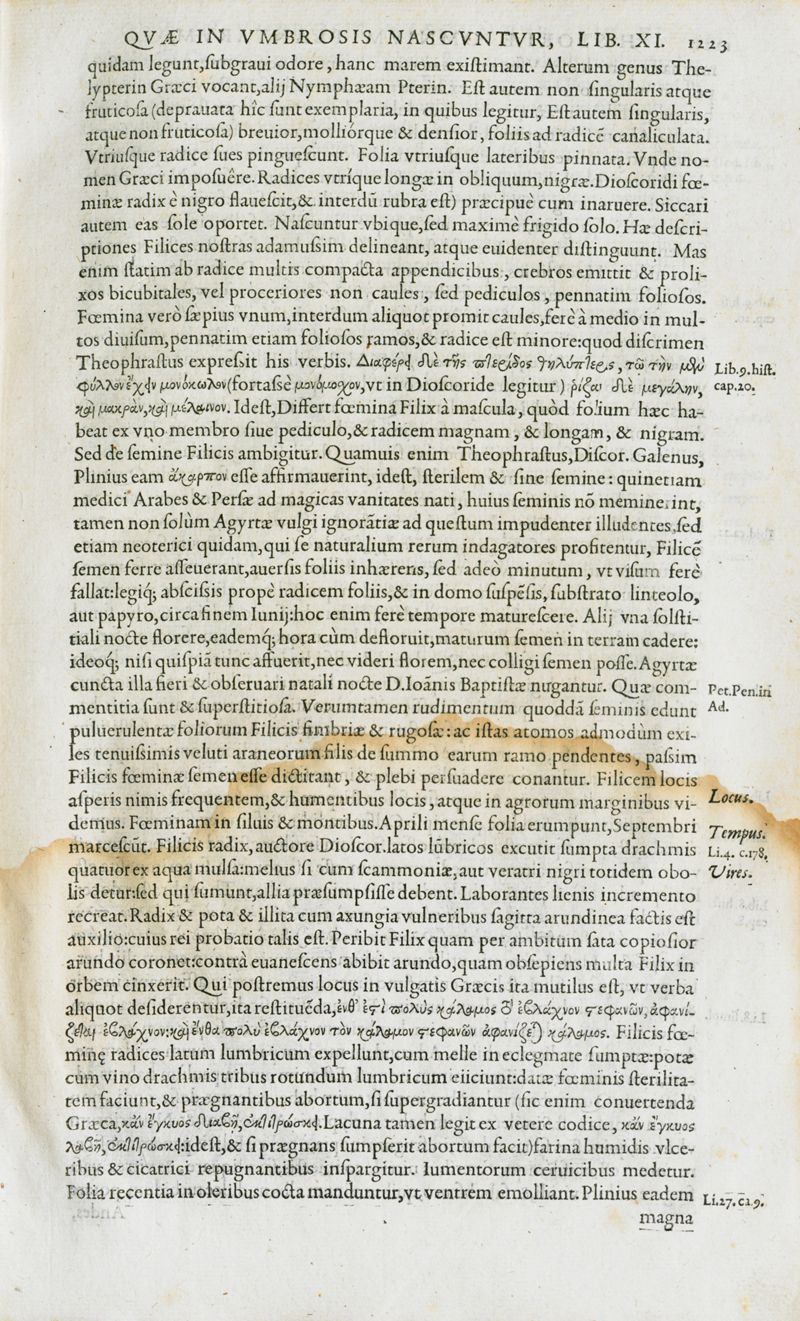 QVÆ IN VMBROSIS NASCVNTVR, LIB. XI. 1223
quidam legunt,ſubgraui odore, hanc marem exiſtimant. Alterum genus The-
lypterin Græci vocant,alij Nymphæam Pterin. Eſt autem non ſingularis atque
fruticoſa (deprauata hîc ſunt exemplaria, in quibus legitur, Eſt autem ſingularis,
atque non fruticoſa) breuior,molliórque & denſior, foliis ad radicē canaliculata.
Vtriuſque radice ſues pingueſcunt. Folia vtriuſque lateribus pinnata. Vnde no-
men Græci impoſuêre. Radices vtríque longæ in obliquum,nigræ. Dioſcoridi fœ-
minæ radix è nigro flaueſcit,& interdū rubra eſt) præcipuè cum inaruere. Siccari
autem eas ſole oportet. Naſcuntur vbique,ſed maximè frigido ſolo. Hæ deſcri-
ptiones Filices noſtras adamuſsim delineant, atque euidenter diſtinguunt. Mas
enim ſtatim ab radice multis compacta appendicibus, crebros emittit & proli-
xos bicubitales, vel proceriores non caules, ſed pediculos, pennatim folioſos.
Fœmina verò ſæpius vnum,interdum aliquot promit caules,ferè à medio in mul-
tos diuiſum,pennatim etiam folioſos ramos,& radice eſt minore:quod diſcrimen
Theophraſtus expreſsit his verbis. Διαφέρει δὲ τῆς πτερίδος θηλύπτερις, τῷ τὴν μὲν
Lib.9.hiſt.
φύλλον ἔχειν μονόκωλον(fortaſsè μονόμοχον,vt in Dioſcoride legitur) ῥίζαν δὲ μεγάλην,
cap.20.
καὶ μακρὰν,καὶ μέλαιναν. Ideſt,Differt fœmina Filix à maſcula, quòd folium hæc ha-
beat ex vno membro ſiue pediculo,& radicem magnam, & longam, & nigram.
Sed de ſemine Filicis ambigitur. Quamuis enim Theophraſtus,Diſcor. Galenus,
Plinius eam ἄκαρπον eſſe affirmauerint, ideſt, ſterilem & ſine ſemine: quinetiam
medici Arabes & Perſæ ad magicas vanitates nati, huius ſeminis nō meminerint,
tamen non ſolùm Agyrtæ vulgi ignorātiæ ad queſtum impudenter illudentes,ſed
etiam neoterici quidam,qui ſe naturalium rerum indagatores profitentur, Filicē
ſemen ferre aſſeuerant,auerſis foliis inhærens, ſed adeò minutum, vt viſum ferè
fallat:legiq́; abſciſsis propè radicem foliis,& in domo ſuſpēſis,ſubſtrato linteolo,
aut papyro,circa finem Iunij:hoc enim ferè tempore matureſcere. Alij vna ſolſti-
tiali nocte florere,eademq́; hora cùm defloruit,maturum ſemen in terram cadere:
ideoq́; niſi quiſpiā tunc affuerit,nec videri florem,nec colligi ſemen poſſe. Agyrtæ
cuncta illa fieri & obſeruari natali nocte D.Ioānis Baptiſtæ nugantur. Quæ com-
Pet.Pen.in
mentitia ſunt & ſuperſtitioſa. Verumtamen rudimentum quoddā ſeminis edunt
Ad.
puluerulentæ foliorum Filicis fimbriæ & rugoſæ: ac iſtas atomos admodùm exi-
les tenuiſsimis veluti araneorum filis de ſummo earum ramo pendentes, paſsim
Filicis fœminæ ſemen eſſe dictitant, & plebi perſuadere conantur. Filicem locis
aſperis nimis frequentem,& humentibus locis, atque in agrorum marginibus vi-
Locus.
demus. Fœminam in ſiluis & montibus. Aprili menſe folia erumpunt,Septembri
Tempus.
marceſcūt. Filicis radix,auctore Dioſcor.latos lūbricos excutit ſumpta drachmis
Li.4. c.178.
quatuor ex aqua mulſa:melius ſi cum ſcammoniæ,aut veratri nigri totidem obo-
Vires.
lis detur:ſed qui ſumunt,allia præſumpſiſſe debent. Laborantes lienis incremento
recreat. Radix & pota & illita cum axungia vulneribus ſagitta arundinea factis eſt
auxilio:cuius rei probatio talis eſt. Peribit Filix quam per ambitum ſata copioſior
arundo coronet:contrà euaneſcens abibit arundo,quam obſepiens multa Filix in
orbem cinxerit. Qui poſtremus locus in vulgatis Græcis ita mutilus eſt, vt verba
aliquot deſiderentur,ita reſtituēda, ἔνθ' ἐπὶ πολὺς κάλαμος ἐβλάχνον στεφανῶν, ἀφανί-
ζεται ἐβλάχνον:καὶ ἔνθα πολὺ ἐβλάχνον τὸν κάλαμον στεφανῶν ἀφανίζεται κάλαμος. Filicis fœ-
minę radices latum lumbricum expellunt,cum melle in eclegmate ſumptæ:potæ
cum vino drachmis tribus rotundum lumbricum eiiciunt:datæ fœminis ſterilita-
tem faciunt,& prægnantibus abortum,ſi ſupergradiantur (ſic enim conuertenda
Græca,κἂν ἔγκυος διαβῇ,ἐκτιτρώσκει. Lacuna tamen legit ex vetere codice, κἂν ἔγκυος
λάβῃ,ἐκτιτρώσκει:ideſt,& ſi prægnans ſumpſerit abortum facit)farina humidis vlce-
ribus & cicatrici repugnantibus inſpargitur. Iumentorum ceruicibus medetur.
Folia recentia in oleribus cocta manduntur,vt ventrem emolliant. Plinius eadem
Li.27.ca.9.
magna